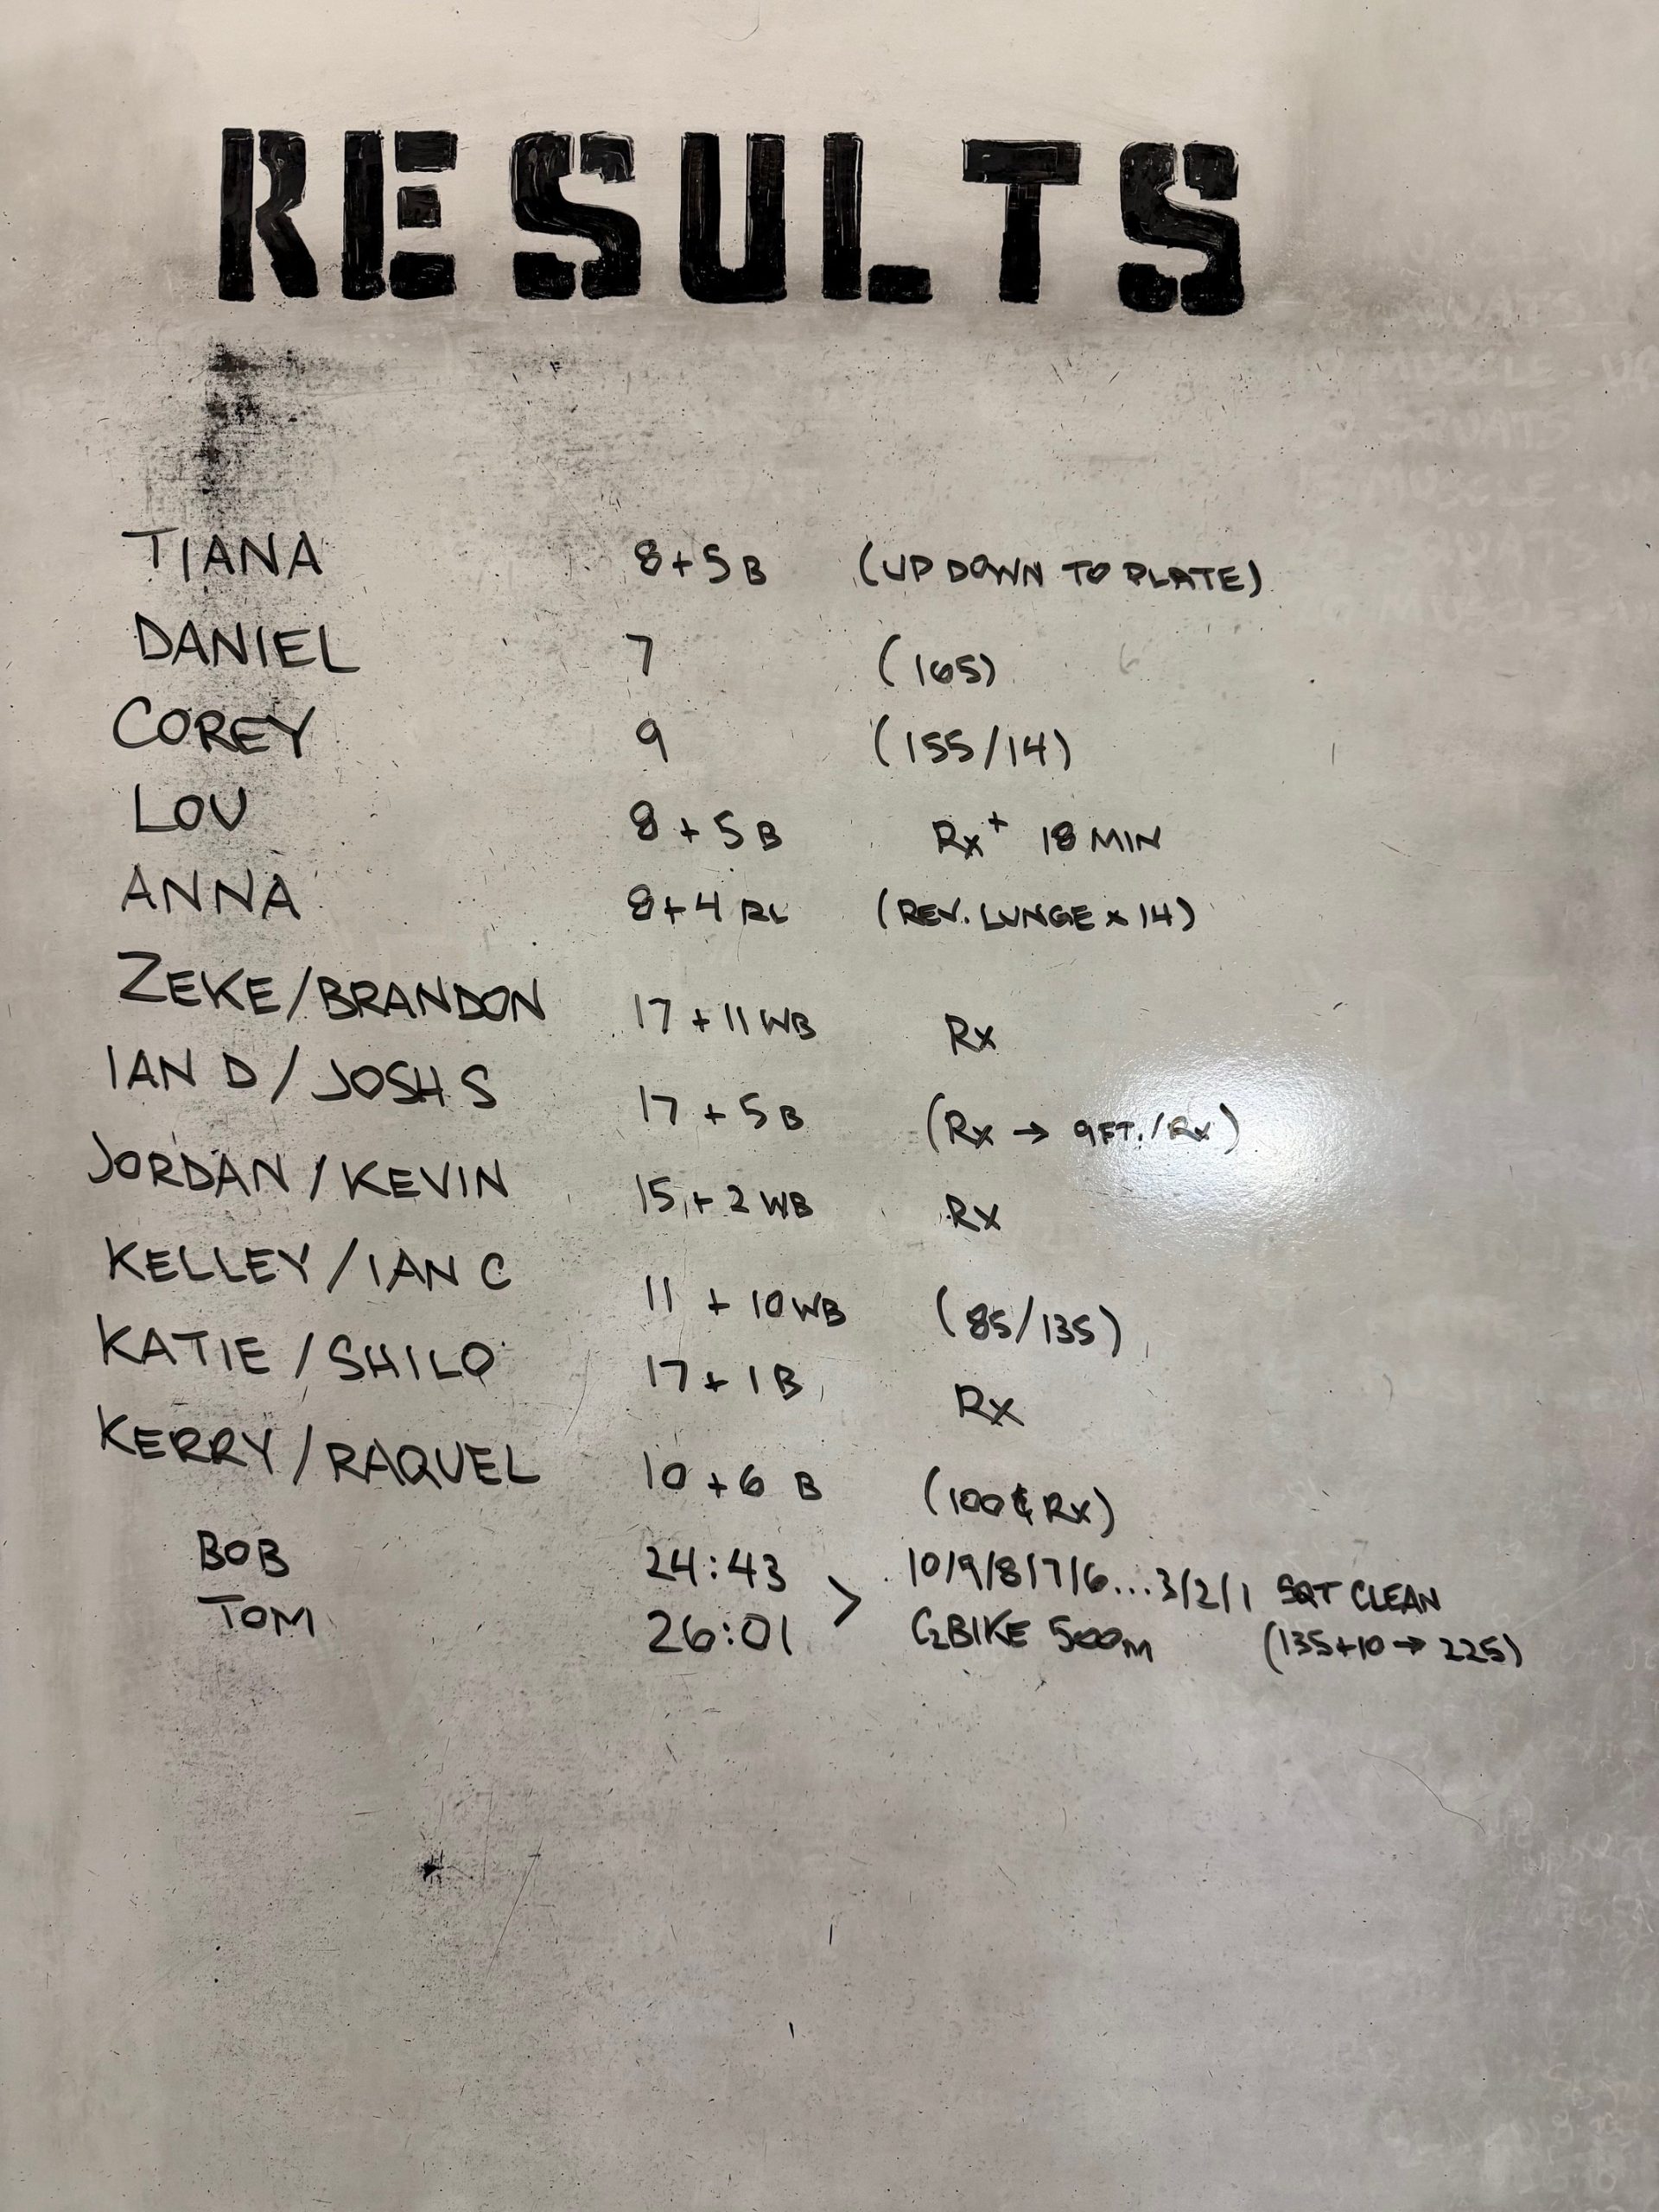 RESULTS
TIANA 8+5B (UP DOWN TO PLATE)
DANIEL 7 (165)
COREY 9 (155/14)
LOU 8+5B Rx+ 18 MIN
ANNA 8+4 RL (REV. LUNGE x 14)
ZEKE/BRANDON 17+11WB Rx
IAN D/JOSH S 17+5B (Rx → 9FT./Rx)
JORDAN/KEVIN 15+2WB Rx
KELLEY/IAN C 11+10WB (85/135)
KATIE/SHILO 17+1B Rx
KERRY/RAQUEL 10+6B (100 & Rx)
BOB 24:43 > 10/9/8/7/6...3/2/1 SQT CLEAN
TOM 26:01 C2BIKE 500m (135+10→225)